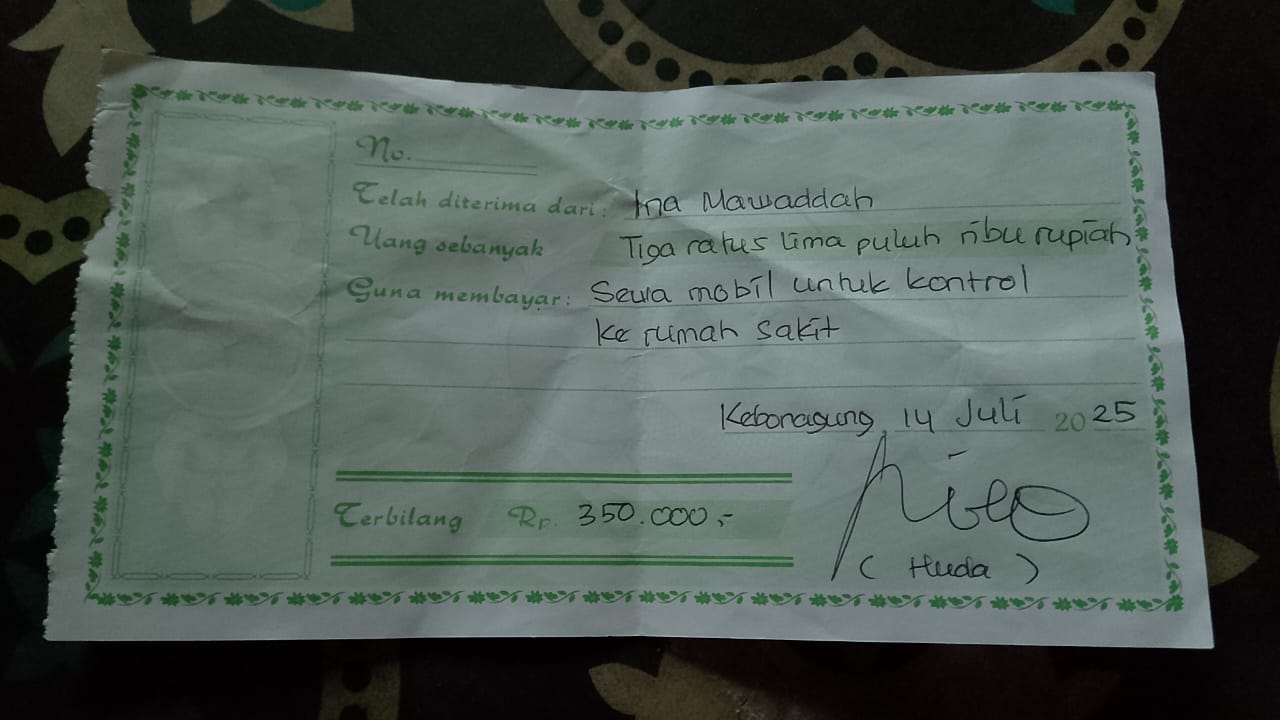 No.
Telah diterima dari: Ina Mawaddah
Uang sebanyak Tiga ratus lima puluh ribu rupiah
Guna membayar: Sewa mobil untuk kontrol
ke rumah sakit
Kebonagung, 14 Juli 2025
Terbilang Rp. 350.000,-
( Huda )